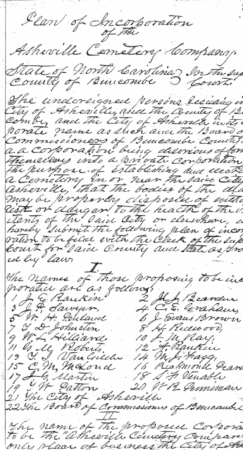 Plan of Incorporation
of the
Asheville Cemetery Company
State of North Carolina In the Sup
County of Buncombe Court
The undersigned persons residing in
City of Asheville and the County of Bun
combe, and the City of Asheville in its cor
porate name as such and the Board of
Commissioners of Buncombe County
as a corporation being desirous of form
themselves into a private corporation
the purpose of establishing and
a Cemetery in or near the said City
Asheville, that the bodies of the dead
may be properly disposed of without
or danger to the health of the
of the said City or elsewhere, do
hereby submit the following plan of incor
poration to be filed with the Clerk of the Sup
Court for said County and State as provid
ed by law
I
The names of those proposing to be inco
porated are as follows
1 J. E. Rankin 2 Bearden
3 J. P. Sawyer 4 C. E. Graham
5 W. H. Penland 6 J. Evans Brown
7 T. D. Johnston 8 H. Redwood
9 W. L. Hilliard 10 A. H. Ray
11 Robert 12 A. Rankin
13 T. J. Van Gilder 14 M. J. Fagg
15 C. M. McLoud 16 Raymond
17 J. L. Martin 18 S. F. Venable
19 T. W. Patton 20 W. R. Penniman
21 The City of Asheville
22 The Board of Commissioners of Buncombe C
The name of the proposed Corpora
to be the Asheville Cemetery Company
only place of business the City of Ash